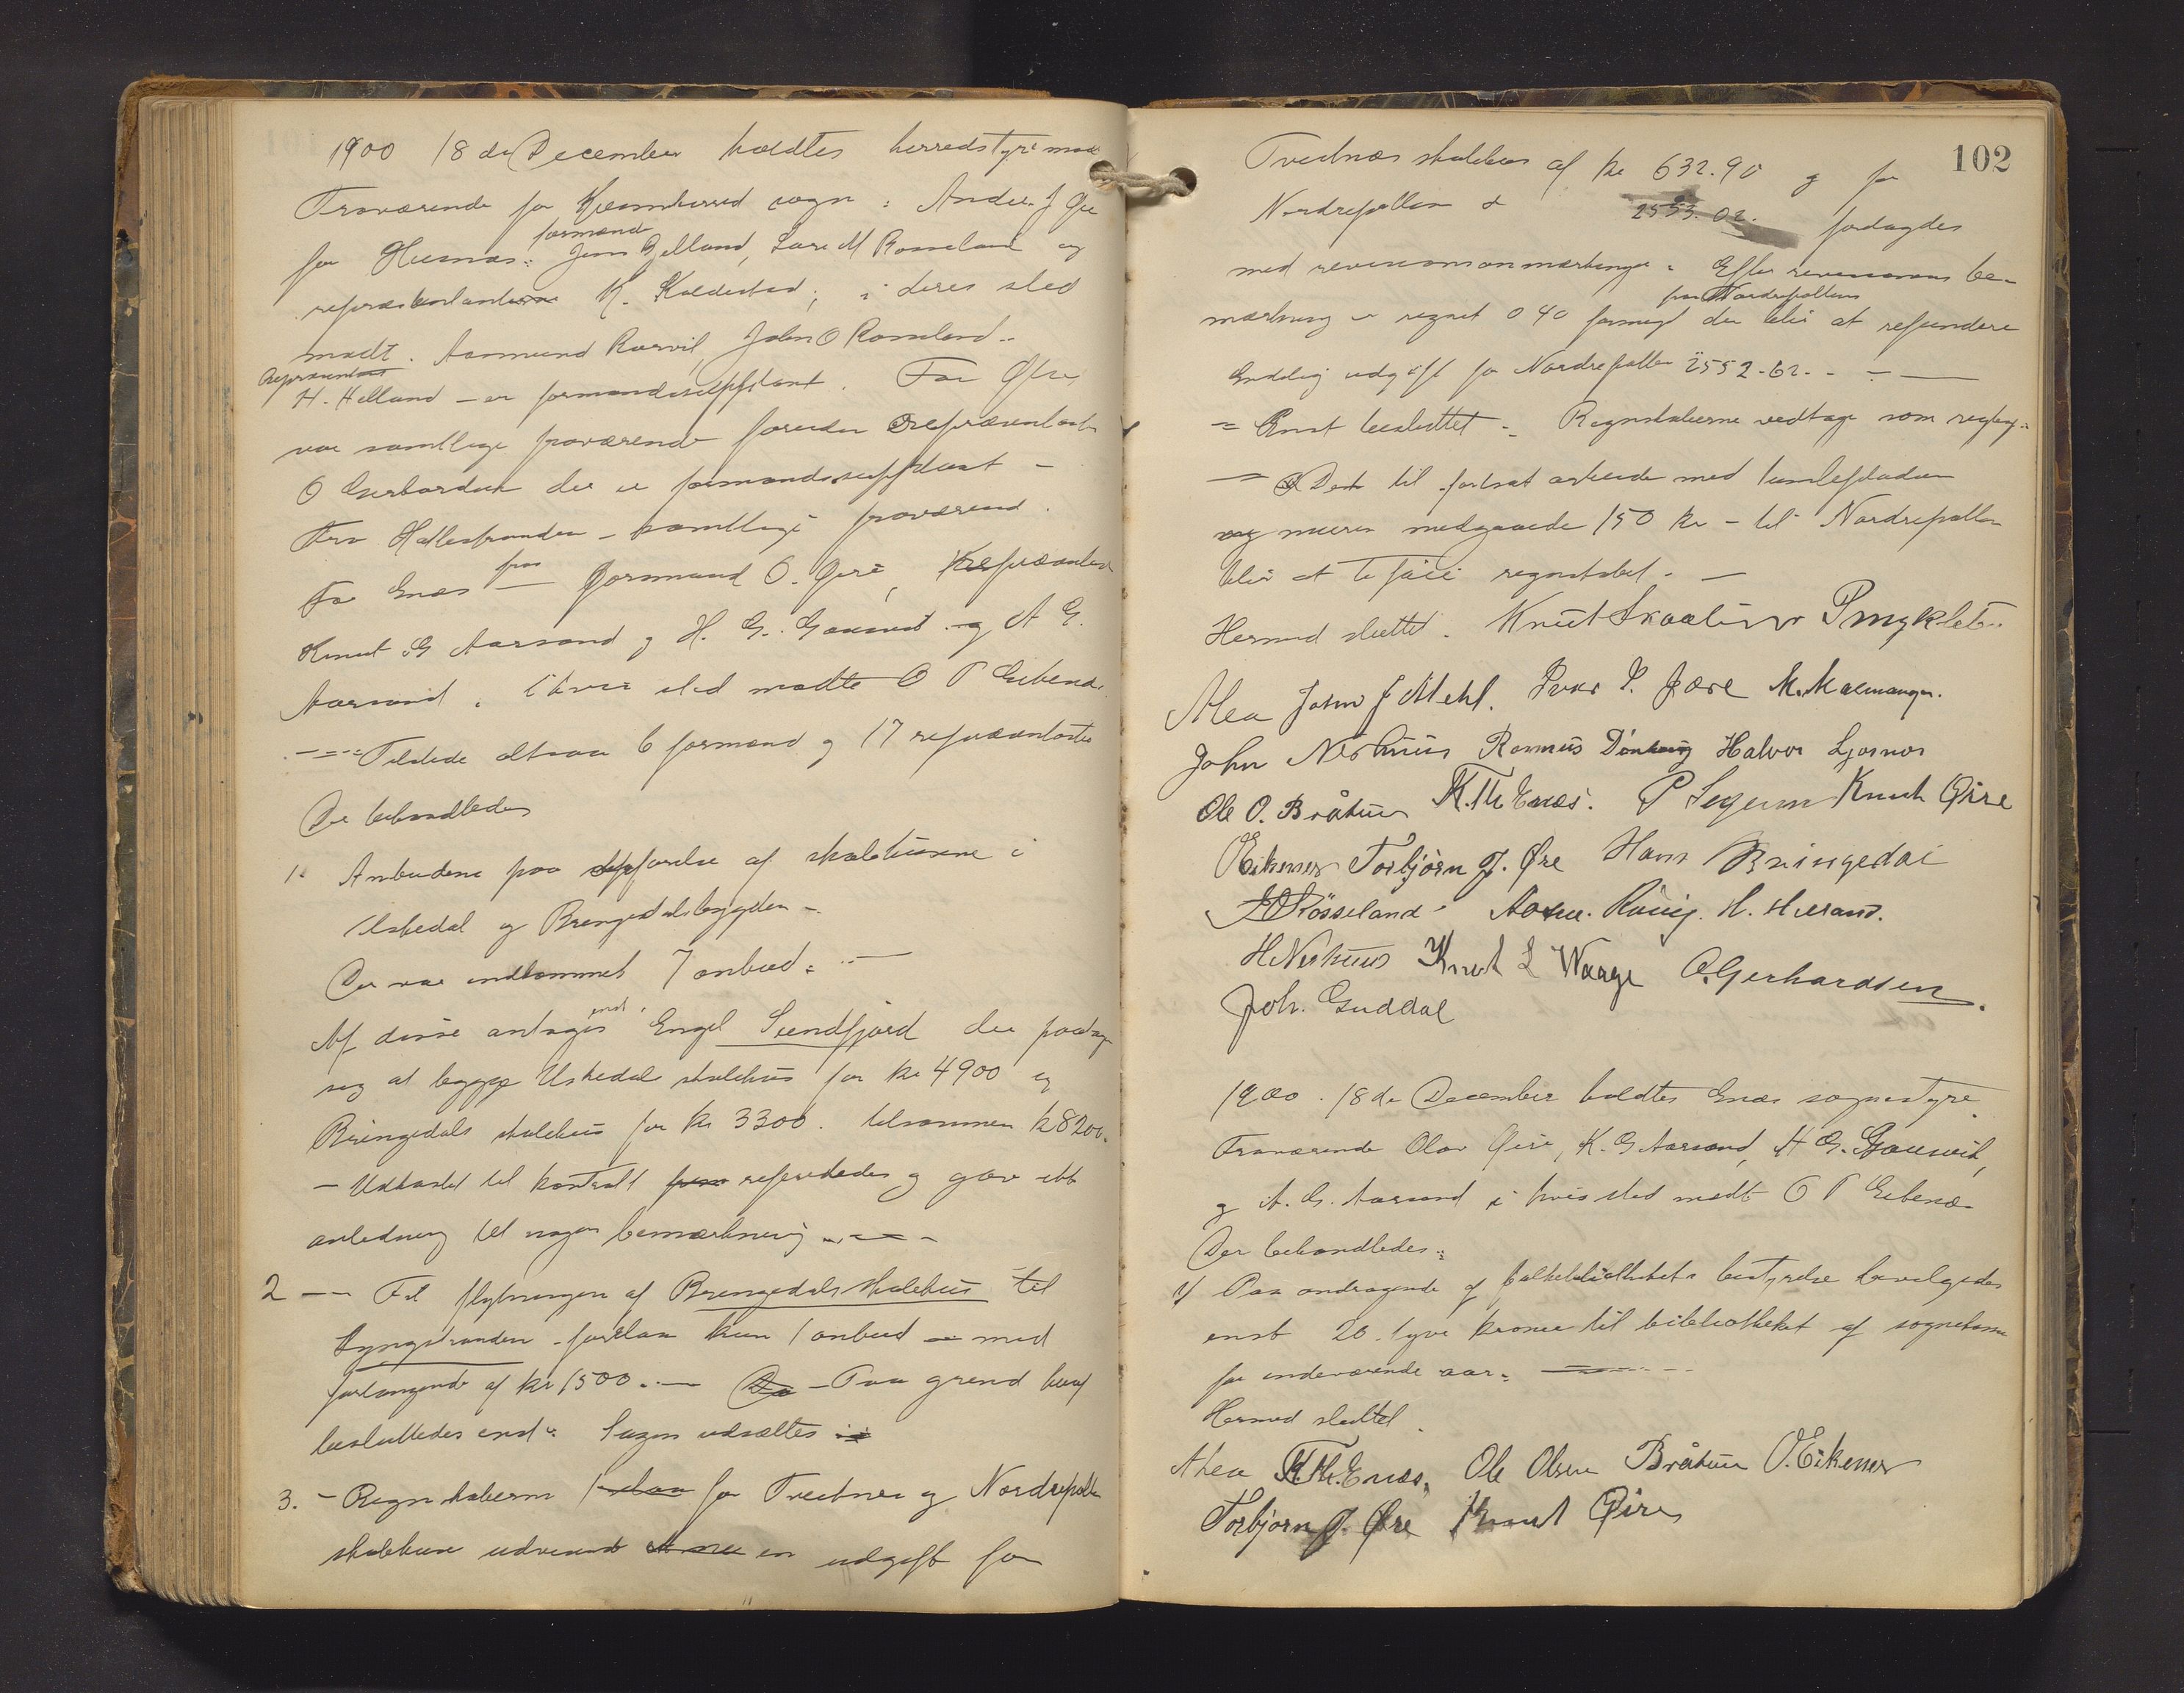 1900 18de December holdtes herredstyremøde
Fraværende for Kvinnherred sogn: Anders J Øie
for Husnæs: formand Jens Gjelland, Lars M Rosseland og
repræsentanterne K. Koldestad; i deres sted
mødt. Aamund Røsvik, John O Rosseland..
Repræsentant
H. Helland - er formandssuppleant. For Ølve
var samtlige fraværende foruden Repræsentant
O Gerhardsen der er formandssuppleant -
Fra Hatlestranden - samtlige fraværend.
For Enæs fra - formand O. Øire, Repræsentant
Knut G Aarsand g H. G. Gausvik og A G.
Aarsand. i hvis sted mødte O T Eebenæs.
Tilstede altsaa 6 formænd g 17 repræsentanter
Der behandledes
1. Anbudene paa opførelse af skolehusene i
Uskedal og Bringedalsbygden -
Der var indkommet 7 anbud: -
Af disse antages enst. Engel Sundfjord der paatog
sig at bygge Uskedals skolehus for kr 4900 og
Bringedals skolehus for kr 3300. tilsammen kr 8200.
- Udkastet til kontrakt refereredes g gav ikke
anledning til nogen bemærkning -
2 - Til flytningen af Bringedals skolehus til
Lyngstranden - forelaa kun 1 anbud - med
forlangende af kr 1500. - Paa grund heraf
besluttedes enst: Sagen udsættes
3. - Regnskaberne for Tveitnes og Nordrepollen
skolehuse udvisende en udgift for
102
Tveitnæs skolehus af kr 632.90 g for
Nordrepollen " 2553.02. fremlagdes
med revisionsanmærkninger. Efter revisionens be-
mærkning er regnet 0 40 formeget for Nordrepollens der blir at refundere
Endelig udgift for Nordrepollen 2552.62. -
= Enst besluttet: Regnskaberne vedtages som
= Det til fortsat arbeide med tumlepladsen
og muren medgaaede 150 kr - til Nordrepollen
blir at tilføie regnskabet. -
Hermed sluttet. Knut Skaaluren P Myklebu..
Alea John J Mehl. Peder P. Fære M. Malmanger.
John Neshuus Rasmus Dønhaug Halvor Ljosnes
Ole O. Bråtun K. Th. Enæs. P Segeim Knut Øire
O Eikenes Torbjørn J. Øre Hans Bringedal
J O Rosseland Aam. Røsvig. H. Helland.
H. Neshuus Knut L Waage O. Gerhardsen.
Joh. Guddal
1900. 18de December holdtes Enæs sognestyre
Fraværende Olav Øire, K. G Aarsand, H G. Gausvik,
g A. G. Aarsand i hvis sted mødt O T Eebenæs
Der behandledes:
1/ Paa andragende af folkebibliothekets bestyrelse bevilgedes
enst 20. tyve kroner til bibliotheket af sognekassen
for indeværende aar:
Hermed sluttet.
Alea K. Th. Enæs, Ole Olsen Bråtun O. Eikenes
Torbjørn J. Øre Knut Øire